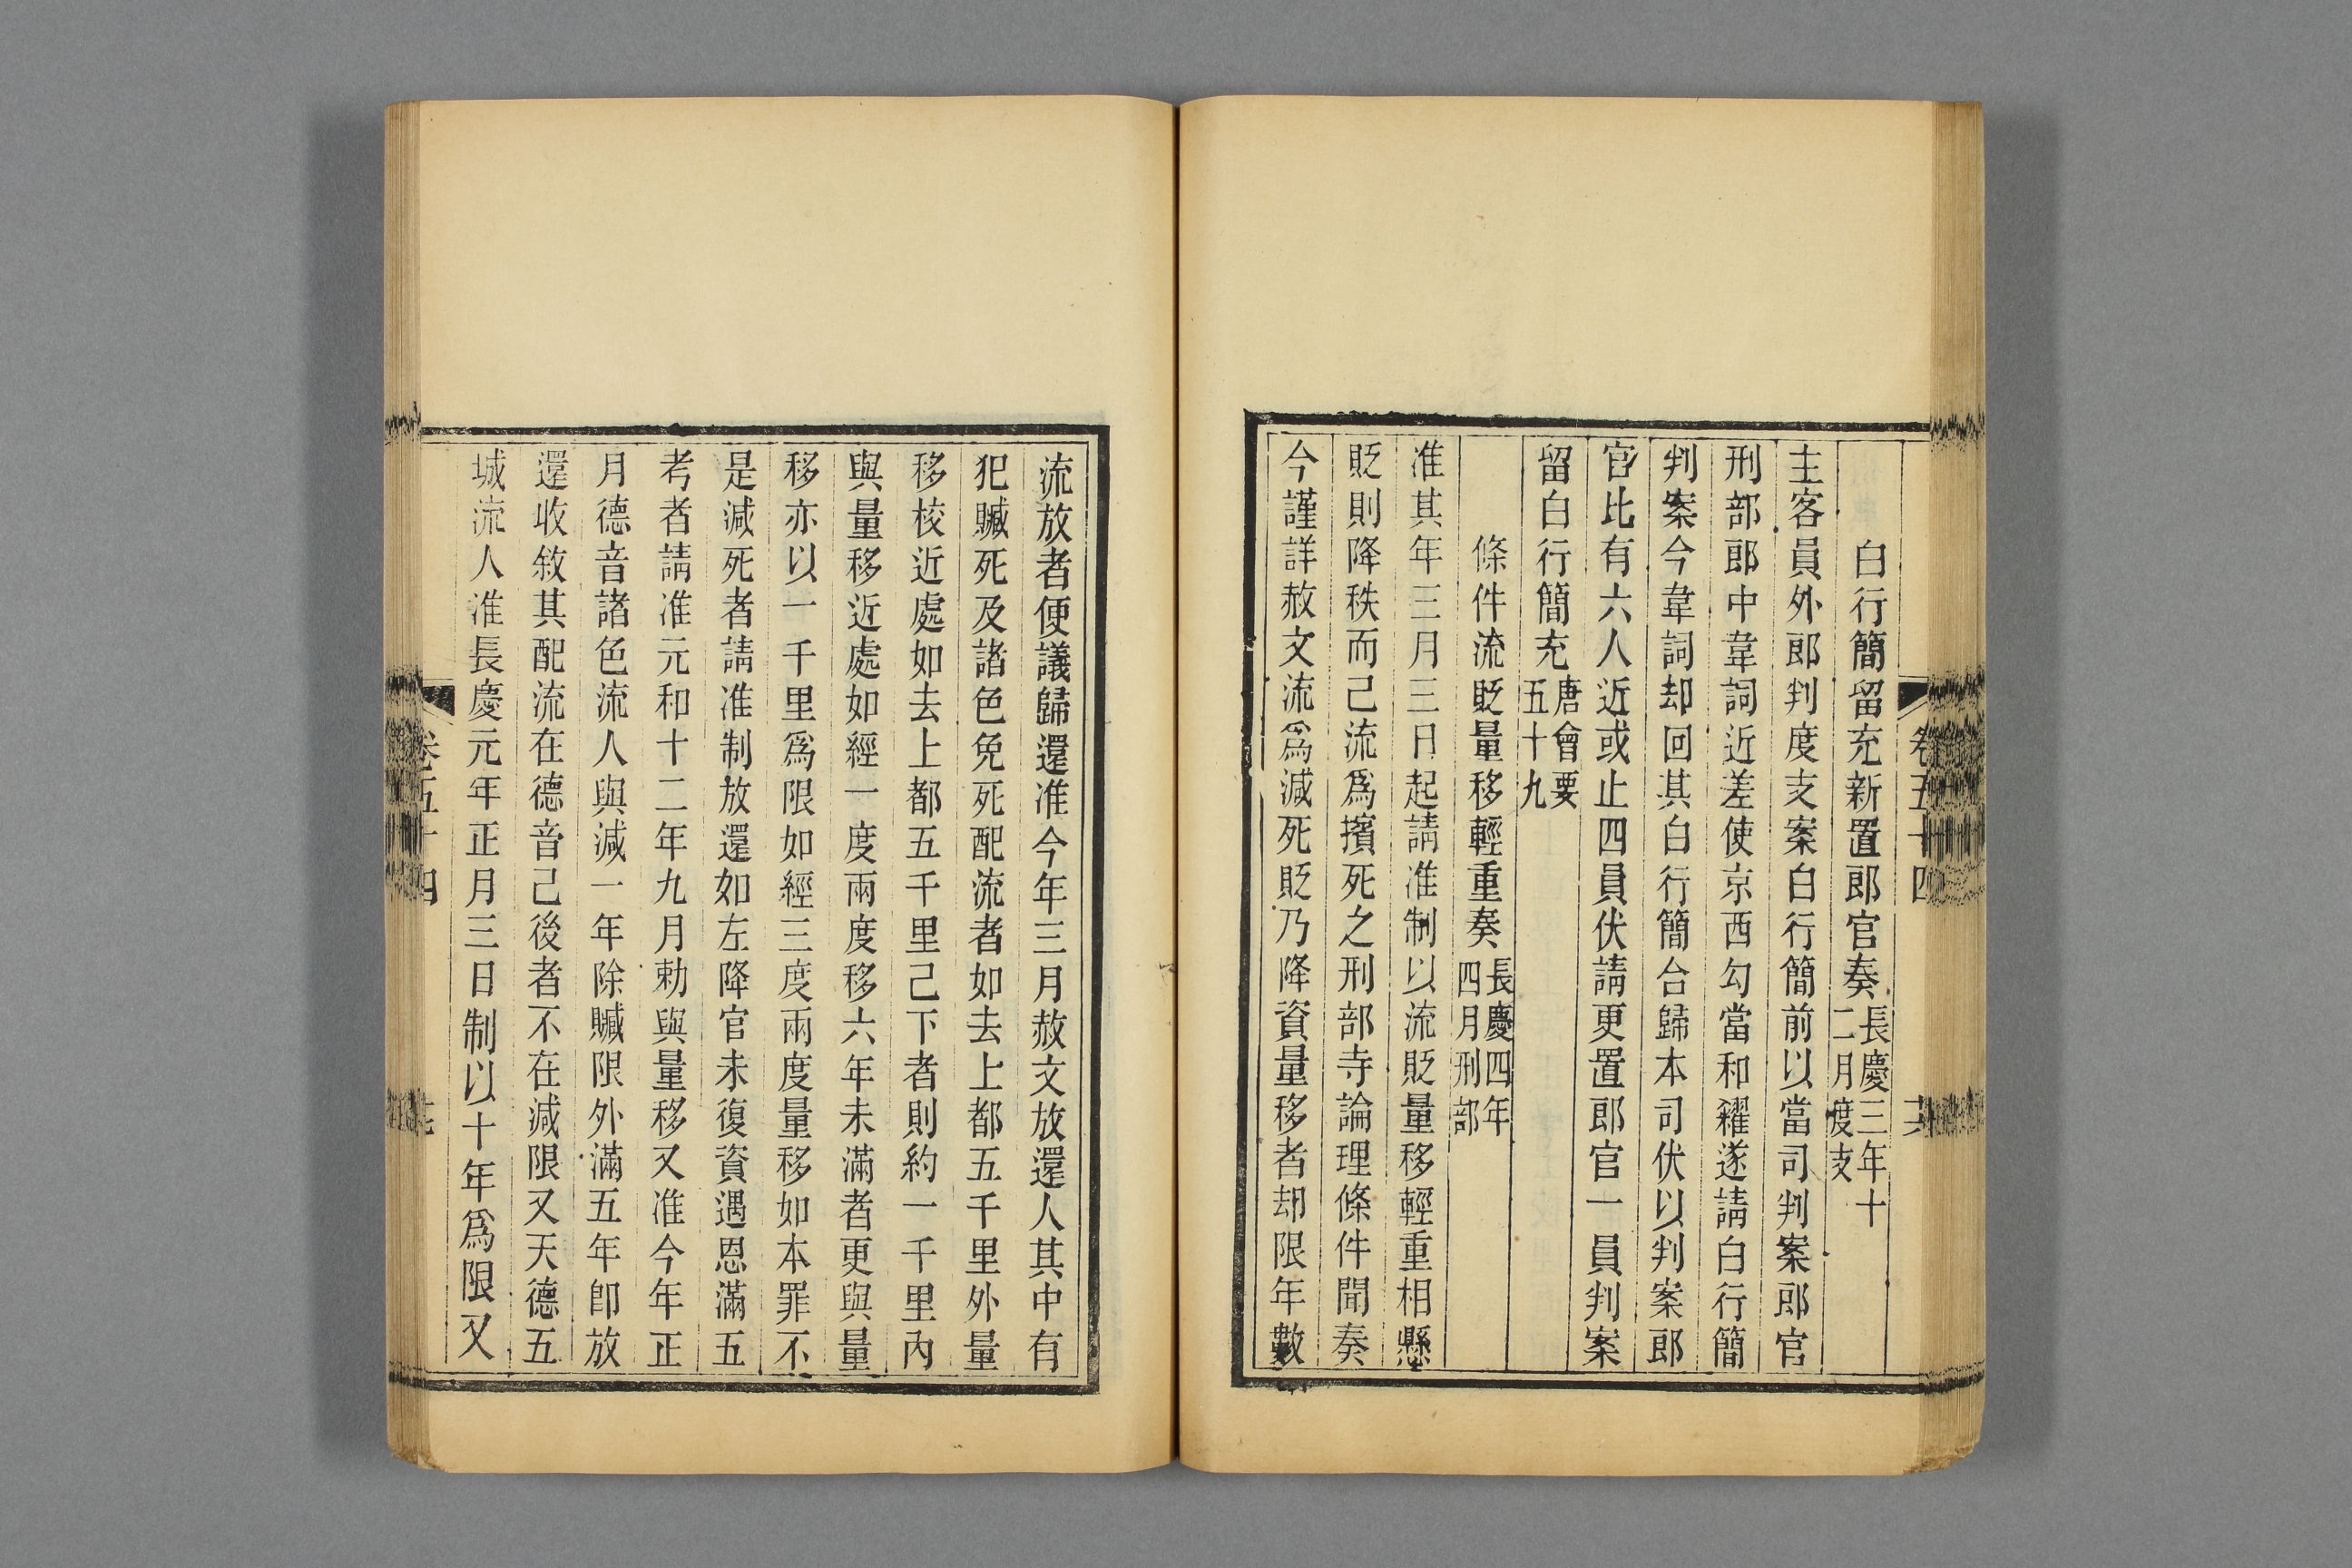 白行簡留充新置郎官奏長慶三年十二月度支
主客員外郎判度支案白行簡前以當司判案郎官
刑部郎中韋詞近差使京西勾當和糴遂請白行簡
判案今韋詞却回其白行簡合歸本司伏以判案郎
官比有六人近或止四員伏請更置郎官一員判案
留白行簡充唐會要五十九
條件流貶量移輕重奏長慶四年四月刑部
准其年三月三日起請准制以流貶量移輕重相懸
貶則降秩而己流爲擯死之刑部寺論理條件聞奏
今謹詳赦文流爲減死貶乃降資量移者却限年數
流放者便議歸還准今年三月赦文放還人其中有
犯贓死及諸色免死配流者如去上都五千里外量
移校近處如去上都五千里己下者則約一千里內
與量移近處如經一度兩度移六年未滿者更與量
移亦以一千里爲限如經三度兩度量移如本罪不
是減死者請准制放還如左降官未復資遇恩滿五
考者請准元和十二年九月勅與量移又准今年正
月德音諸色流人與減一年除贓限外滿五年卽放
還收敘其配流在德音己後者不在減限又天德五
城流人准長慶元年正月三日制以十年爲限又
卷五十四